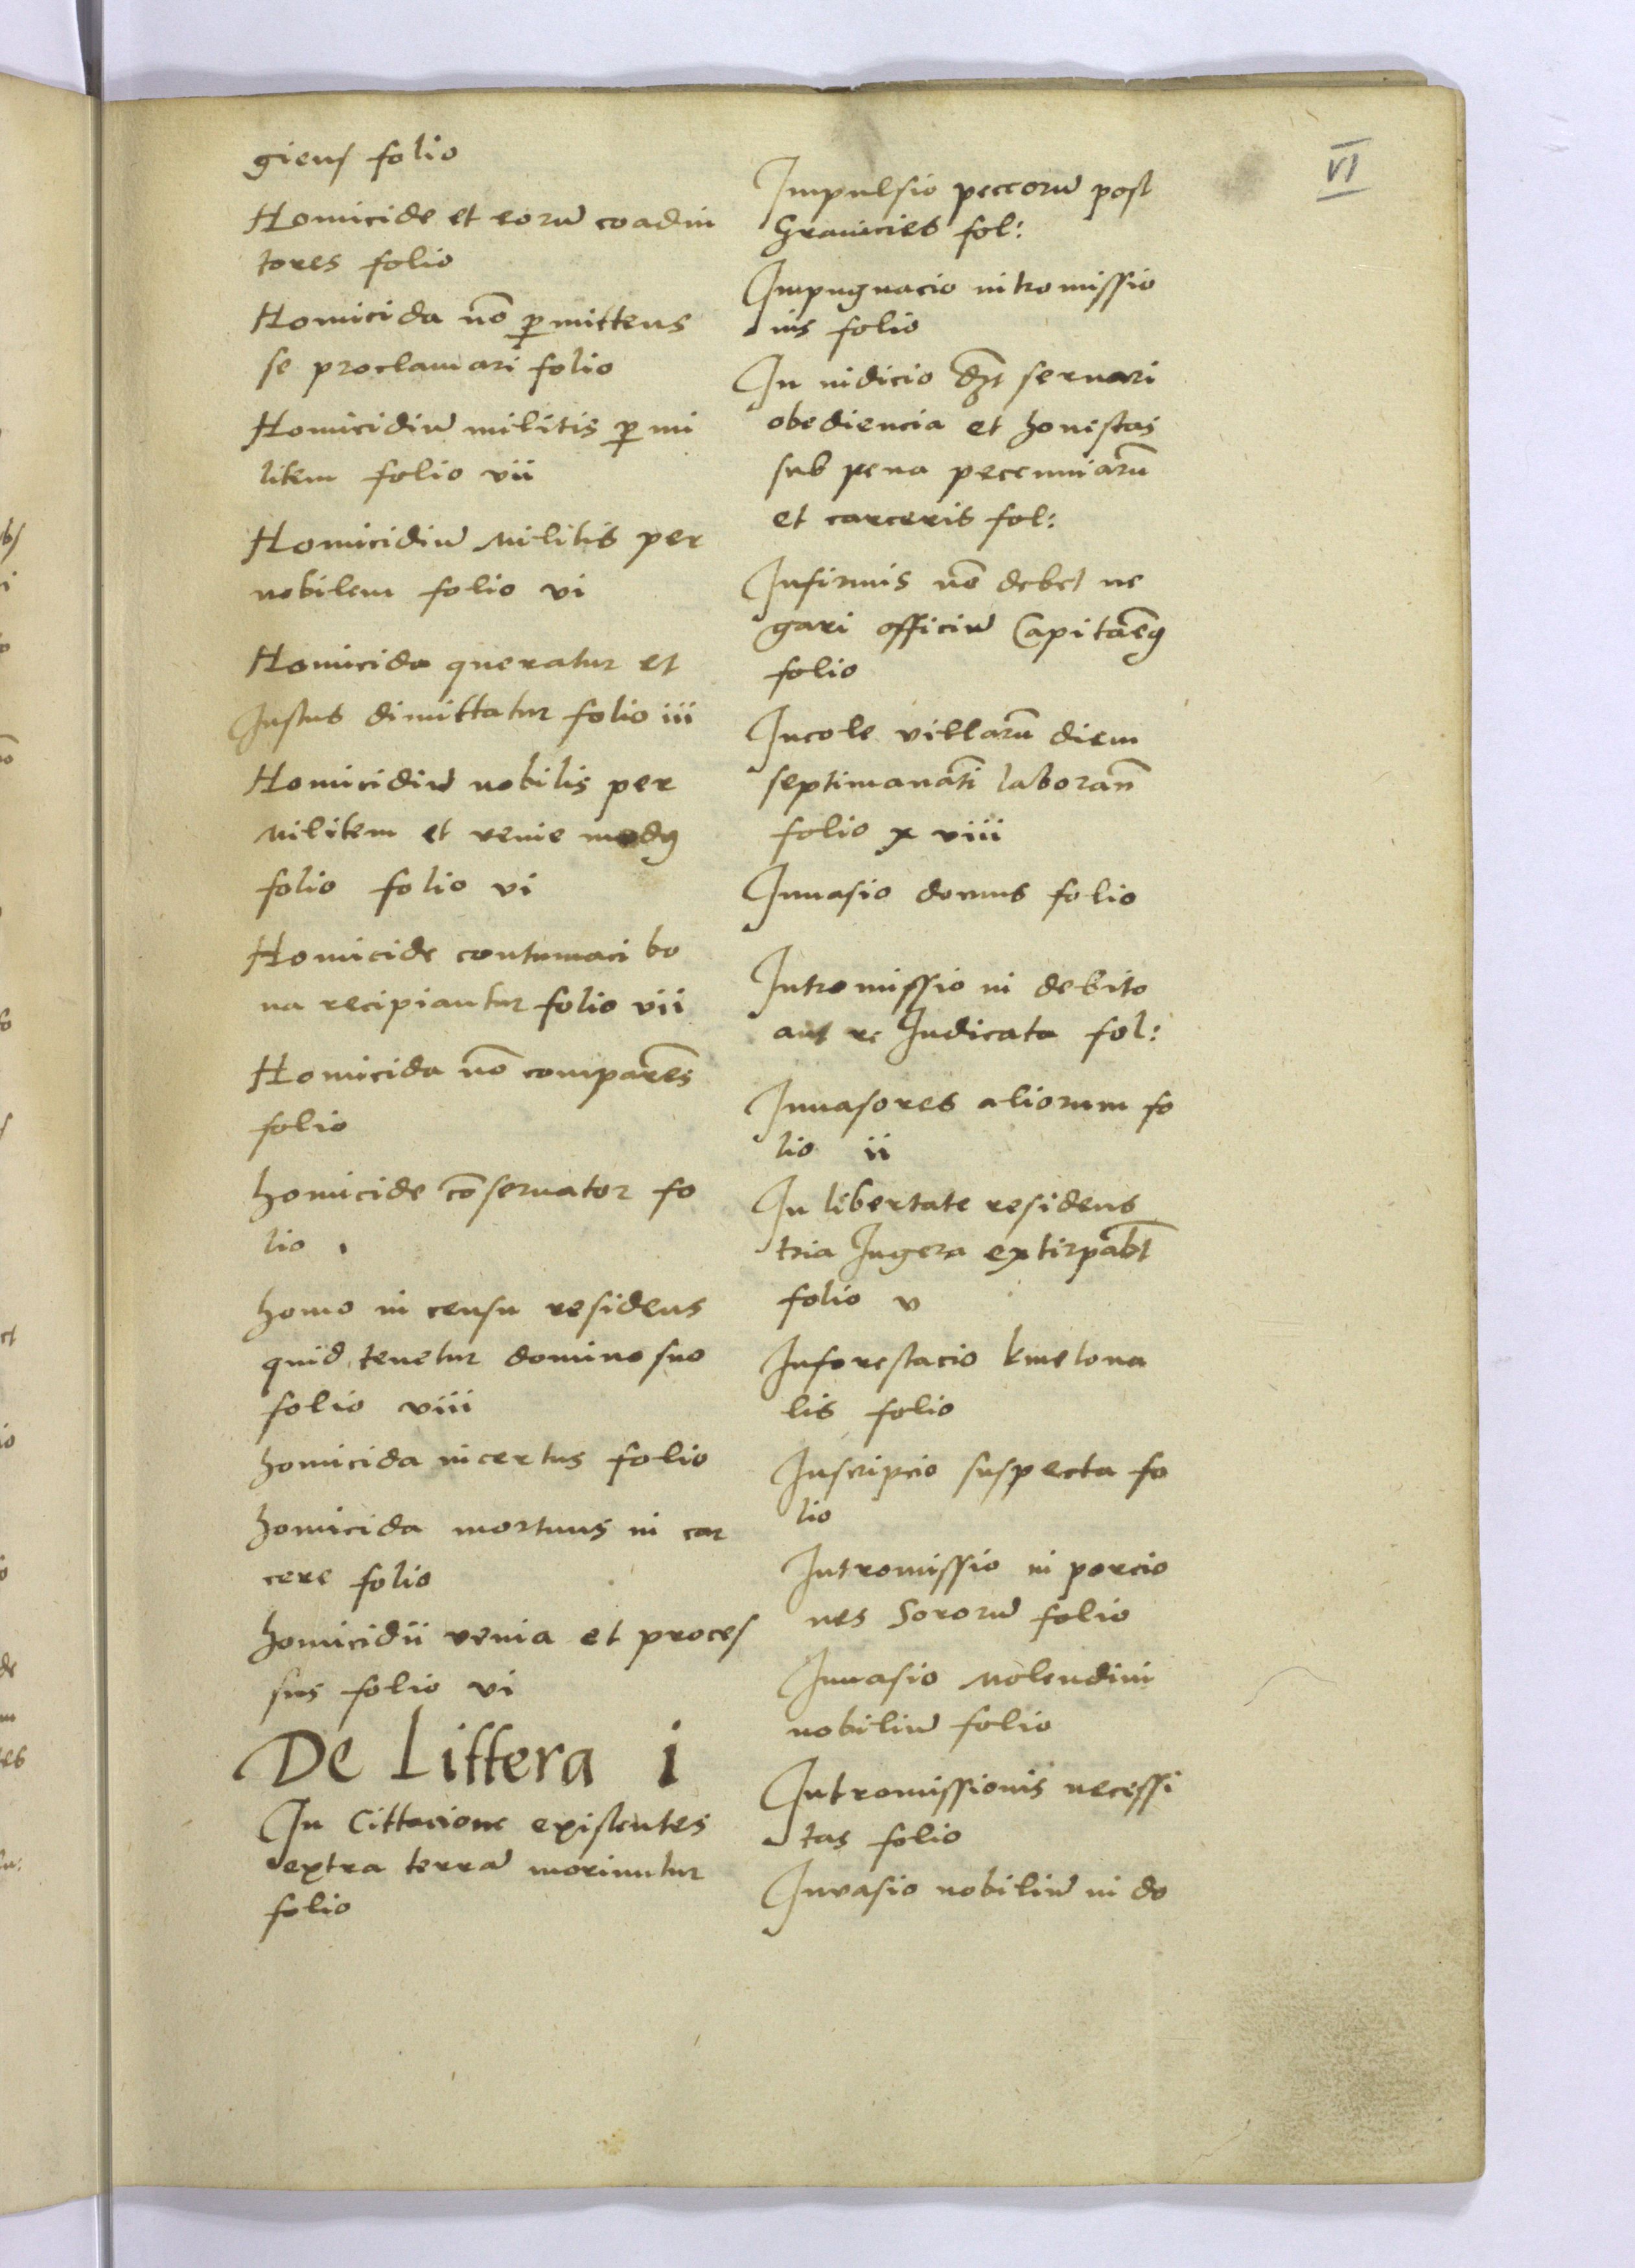 VI
giens folio
Homicide et eorū coadiu
tores folio
Homicida nō ꝑmittens
se proclamari folio
Homicidiū militis ꝑ mi
litem folio vii
Homicidiū Militis per
nobilem folio vi
Homicida queratur et
Iustus dimittatur folio iii
Homicidiū nobilis per
Militem et venie modꝯ
folio folio vi
Homicide contumaci bo
na recipiantur folio vii
Homicida nō comparēs
folio
homicide cōseruator fo
lio
homo in censu residens
quid tenetur domino suo
folio viii
homicida incertus folio
homicida mortuus in car
cere folio
homicidii venia et proces
sus folio vi
De Littera i
In Cittacione existentes
extra terrā moriuntur
folio
Impulsio peccorū post
Granicies fol:
Impugnacio intromissio
nis folio
In iudicio servari
obediencia et honestas
sub pena peccuniarū
et carceris fol:
Infirmis nō debet ne
gari officiū
folio
Incole villarū diem
septimanatī laborān
folio x viii
Inuasio domus folio
Intromissio in debito
aut re Iudicata fol:
Inuasores aliorum fo
lio ii
In libertate residens
tria Iugera extirpābt
folio v
Inforestacio kmetona
lis folio
Inscripcio suspecta fo
lio
Intromissio in porcio
nes Sororū folio
Inuasio Molendini
nobiliū folio
Intromissionis necessi
tas folio
Invasio nobiliū in do